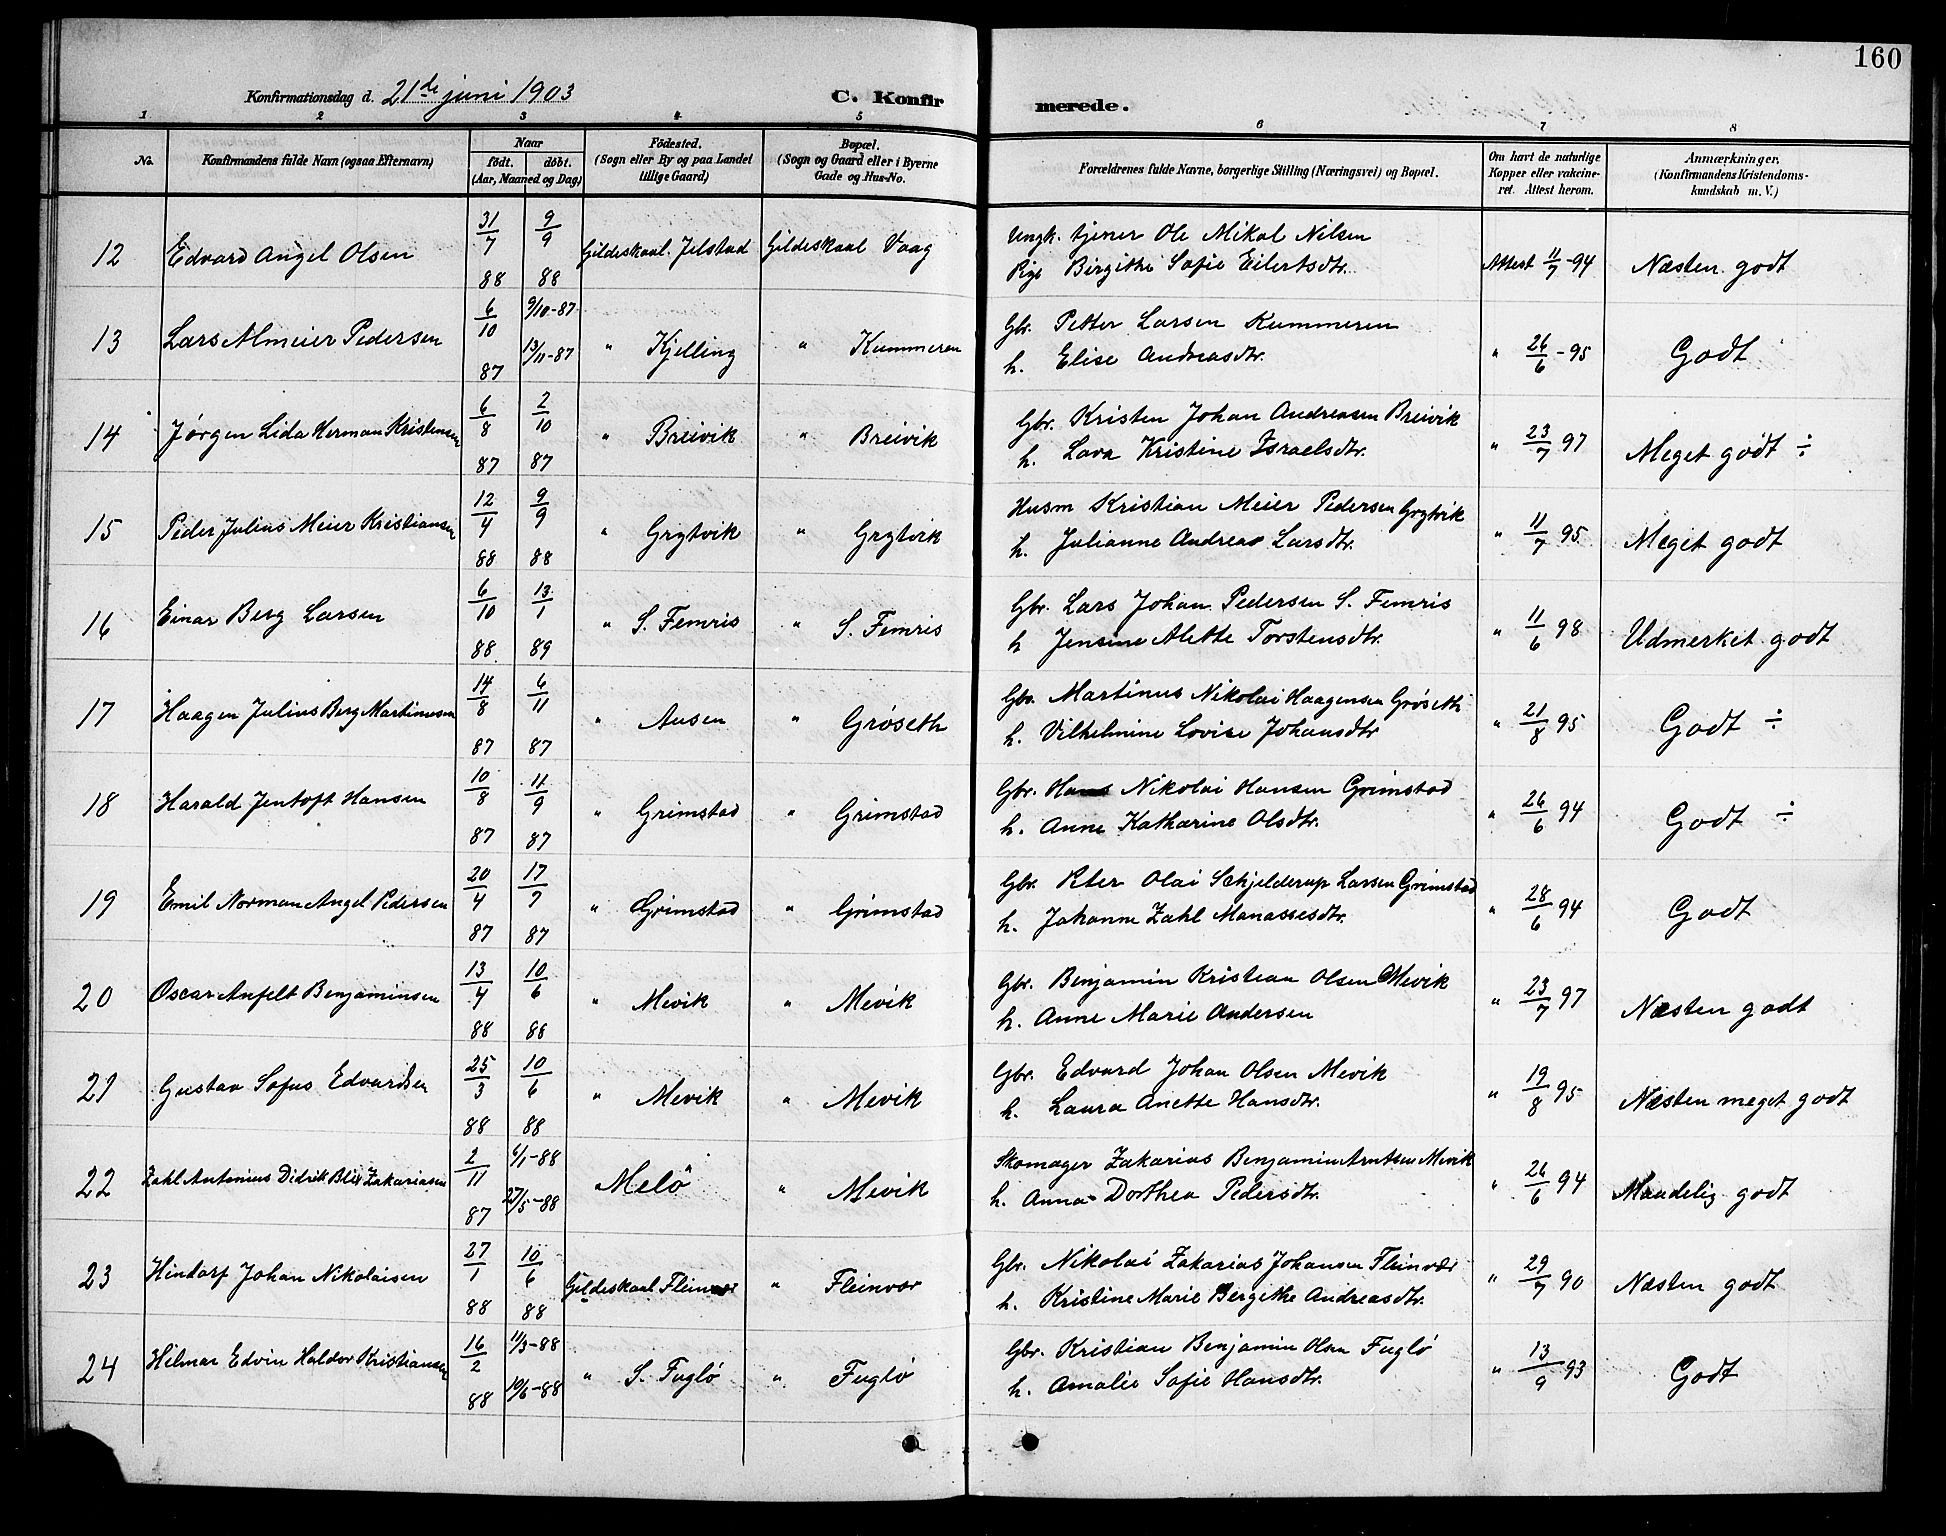 160
Konfirmationsdag d. 21de juni 1903 C. Konfir merede.
1 2 3 4 5 6 7 8
No. Konfirmandens fulde Navn (ogsaa Efternavn) Naar födt. döbt. (Aar, Maaned og Dag) Födested. (Sogn eller By og paa Landet tillige Gaard) Bopæl. (Sogn og Gaard eller i Byerne Gade og Hus-No. Forældrenes fulde Navne, borgerlige Stilling (Næringsvei) og Bopæl. Om havt de naturlige Kopper eller vakcineret. Attest herom. Anmærkninger, (Konfirmandens Kristendomskundskab m. V.)
12 Edvard Angel Olsen 31/7 88 9/9 88 Gildeskaal. Jelstad Gildeskaal Vaag Ungk. tjener Ole Mikal Nilsen
Pige Birgithe Sofie Eilertsdtr. Attest 11/7 -94 Næsten godt
13 Lars Almeier Pedersen 6/10 87 9/10-87 13/11-87 " Kjelling " Kummeren Gbr. Petter Larsen Kummeren
h. Elise Andreasdtr. " 26/6 -95 Godt
14 Jørgen Lida Herman Kristensen 6/8 87 2/10 87 " Breivik " Breivik Gbr. Kristen Johan Andreasen Breivik
h. Lava Kristine Israelsdtr. " 23/7 97 Meget godt ÷
15 Peder Julius Meier Kristiansen 12/4 88 9/9 88 " Grytvik " Grytvik Husm Kristian Meier Pedersen Grytvik
h. Julianne Andrea Larsdtr. " 11/7 95 Meget godt
16 Einar Berg Larsen 6/10 88 13/1 89 " S. Femris " S. Femris Gbr. Lars Johan Pedersen S. Femris
h Jensine Alette Torstensdtr. " 11/6 98 Udmerket godt
17 Haagen Julius Berg Martinusen 14/8 87 6/11 87 " Ausen " Grøseth Gbr. Martinus Nikolai Haagensen Grøseth
h. Vilhelmine Lovise Johansdtr " 21/8 95 Godt ÷
18 Harald Jentoft Hansen 10/8 87 11/9 87 " Grimstad " Grimstad Gbr. Hans Nikolai Hansen Grimstad
h. Anne Katharine Olsdtr. " 26/6 94 Godt ÷
19 Emil Norman Angel Pedersen 20/4 87 17/7 87 " Grimstad " Grimstad Gbr. Peter Olai Schjelderup Larsen Grimstad
h. Johanne Zahl Manassesdtr. " 28/6 94 Godt
20 Oscar Anfelt Benjaminsen 13/4 88 10/6 88 " Mevik " Mevik Gbr. Benjamin Kristian Olsen Mevik
h. Anne Marie Andersen " 23/7 97 Næsten godt
21 Gustav Sofus Edvardsen 25/3 88 10/6 88 " Mevik " Mevik Gbr. Edvard Johan Olsen Mevik
h. Laura Anette Hansdtr. " 19/8 95 Næsten meget godt
22 Zahl Antonius Didrik Blix Zakariasen 2/11 87 6/1-88 27/5-88 Melö " Mevik Skomager Zakarias Benjamin Arntsen Mevik
h. Anna Dorthea Pedersdtr. " 26/6 94 Maadelig godt
23 Hindorf Johan Nikolaisen 27/1 88 10/6 88 Gildeskaal Fleinvær " Fleinvær Gbr. Nikolai Zakarias Johansen Fleinvær
h. Kristine Marie Bergithe Andreasdtr. " 29/7 90 Næsten godt
24 Hilmar Edvin Haldor Kristiansen 16/2 88 11/3-88 10/6-88 " S. Fuglø " Fuglø Gbr. Kristian Benjamin Olsen Fuglø
h. Amalie Sofie Hansdtr. " 13/9 93 Godt